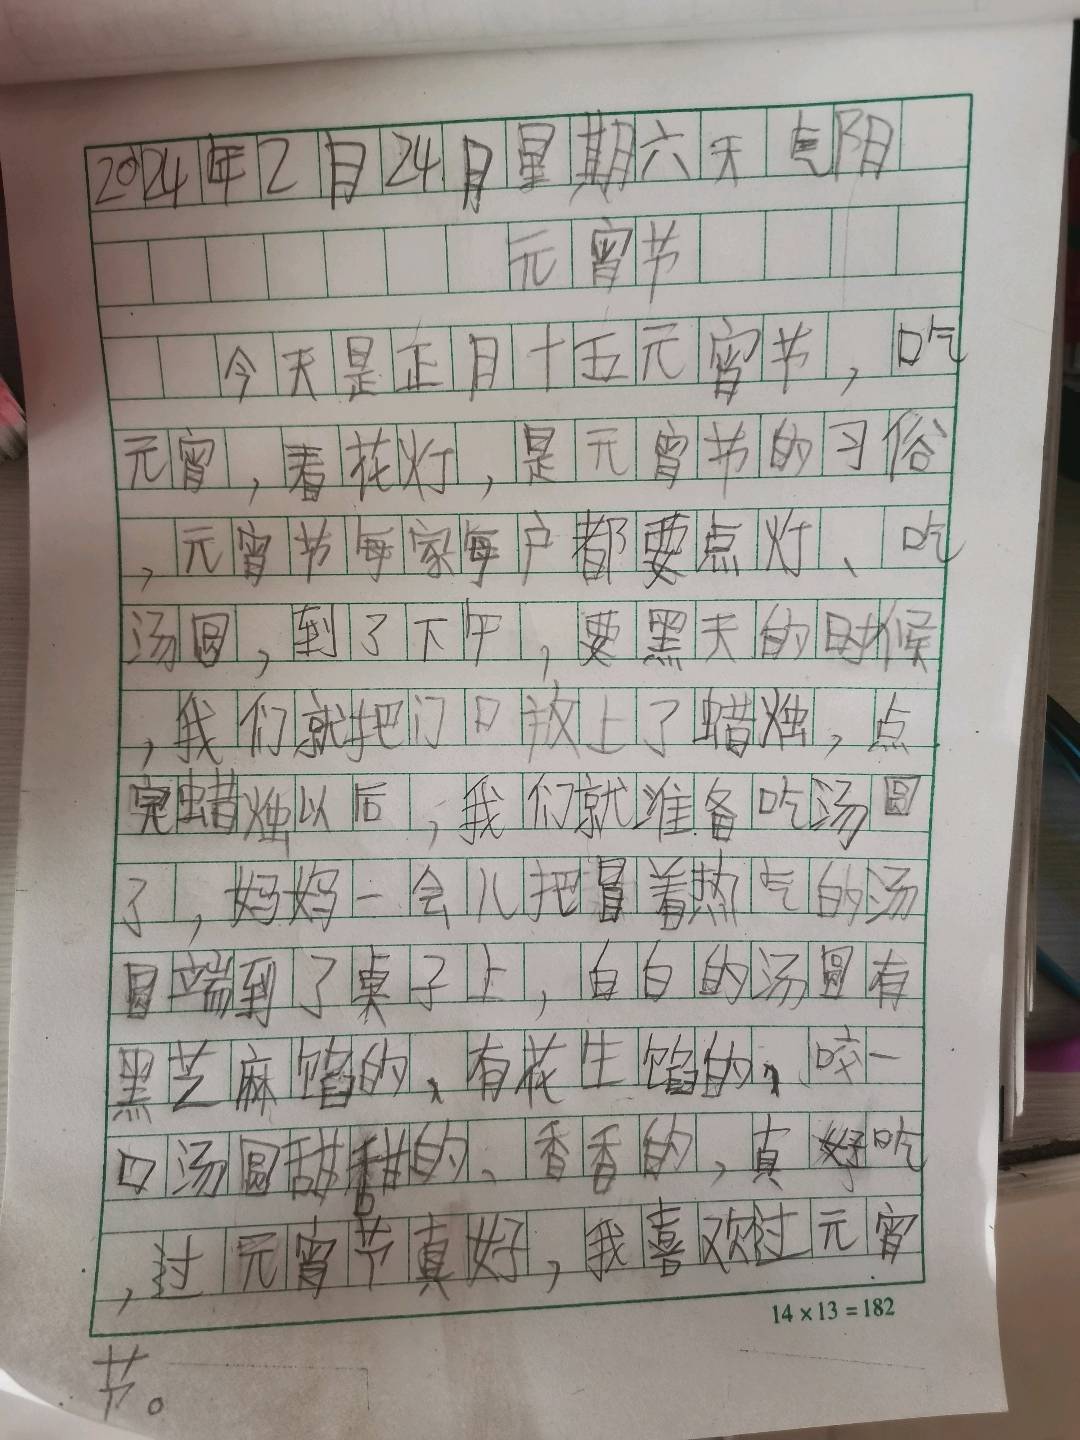 2024年2月24月星期六天气阴
元宵节
今天是正月十五元宵节，吃
元宵，看花灯，是元宵节的习俗
，元宵节每家每户都要点灯、吃
汤圆，到了下午，要黑天的时候
，我们就把门口放上了蜡烛，点
完蜡烛以后，我们就准备吃汤圆
了，妈妈一会儿把冒着热气的汤
圆端到了桌子上，白白的汤圆有
黑芝麻馅的、有花生馅的，咬一
口汤圆甜甜的、香香的，真好吃
，过元宵节真好，我喜欢过元宵
14×13=182
节。